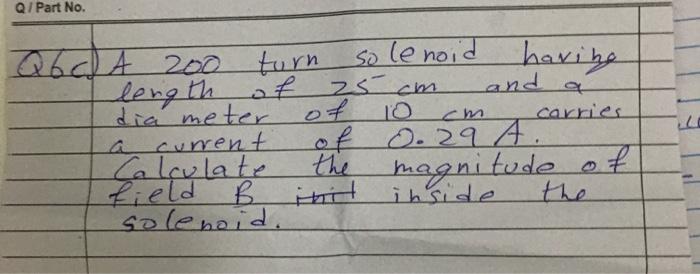 Q/Part No.
Q6c) A 200 turn solenoid having
length of 25 cm and a
diameter of 10 cm carries
a current of 0.29 A.
Calculate the magnitude of
field B inside the
solenoid.